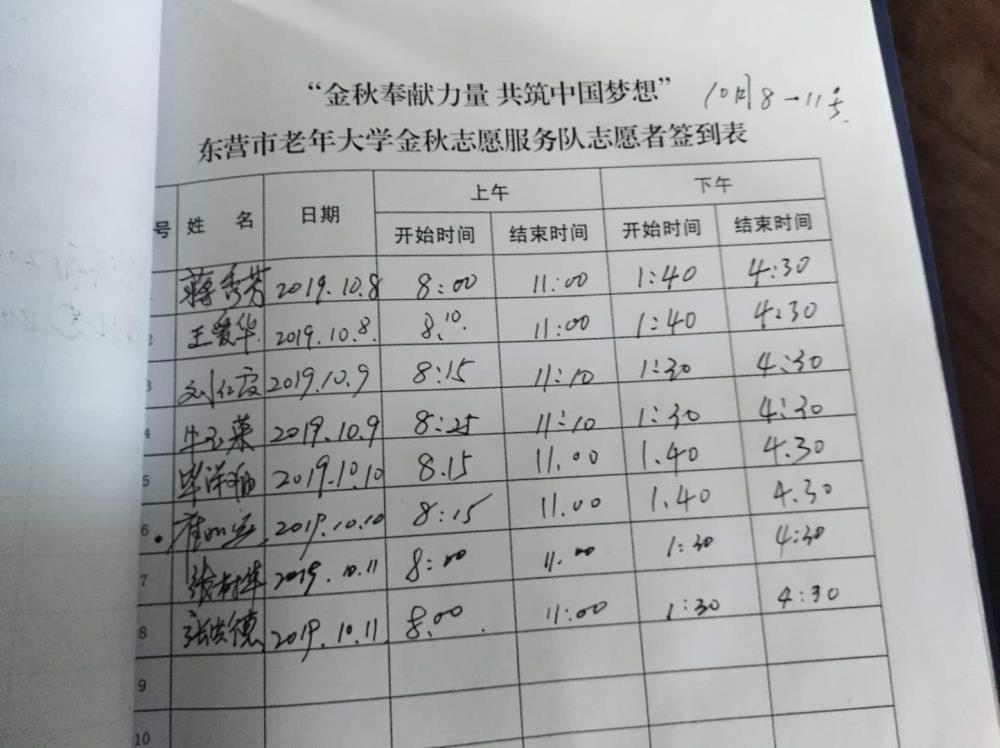 “金秋奉献力量 共筑中国梦想” 10月8-11号
东营市老年大学金秋志愿服务队志愿者签到表
号 姓 名 日期 上午 下午
开始时间 结束时间 开始时间 结束时间
蒋秀芳 2019.10.8 8:00 11:00 1:40 4:30
2 王爱华 2019.10.8 8.10 11:00 1:40 4:30
3 刘仁霞 2019.10.9 8:15 11:10 1:30 4:30
4 牛玉荣 2019.10.9 8:25 11:10 1:30 4:30
5 毕 2019.10.10 8.15 11.00 1.40 4.30
6 崔 2019.10.10 8:15 11.00 1.40 4.30
7 张树华 2019.10.11 8:00 11.00 1:30 4:30
8 张洪德 2019.10.11 8.00 11:00 1:30 4:30
9
10